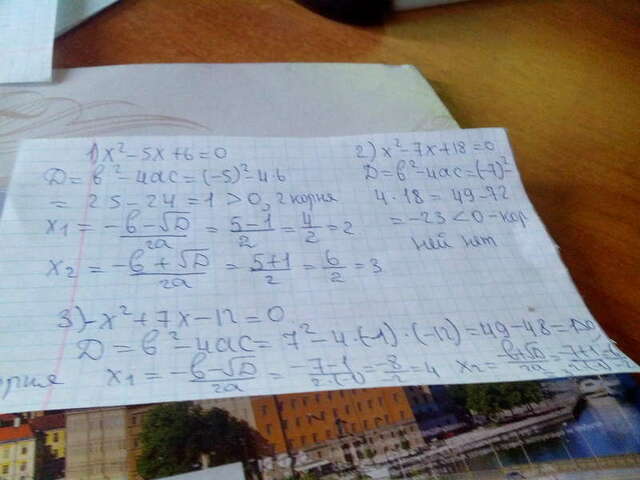 1) x² - 5x + 6 = 0
D = b² - 4ac = (-5)² - 4·6
= 25 - 24 = 1 > 0, 2 корня
x₁ = -b-√D/2a = 5-1/2 = 4/2 = 2
x₂ = -b+√D/2a = 5+1/2 = 6/2 = 3
2) x² - 7x + 18 = 0
D = b² - 4ac = (-7)² -
4·18 = 49 - 72
= -23 < 0 - кор
ней нет
3) -x² + 7x - 12 = 0
D = b² - 4ac = 7² - 4·(-1)·(-12) = 49 - 48 = 1>0
x₁ = -b-√D/2a = -7-1/2·(-1) = 8/2 = 4 x₂ = -b+√D/2a =